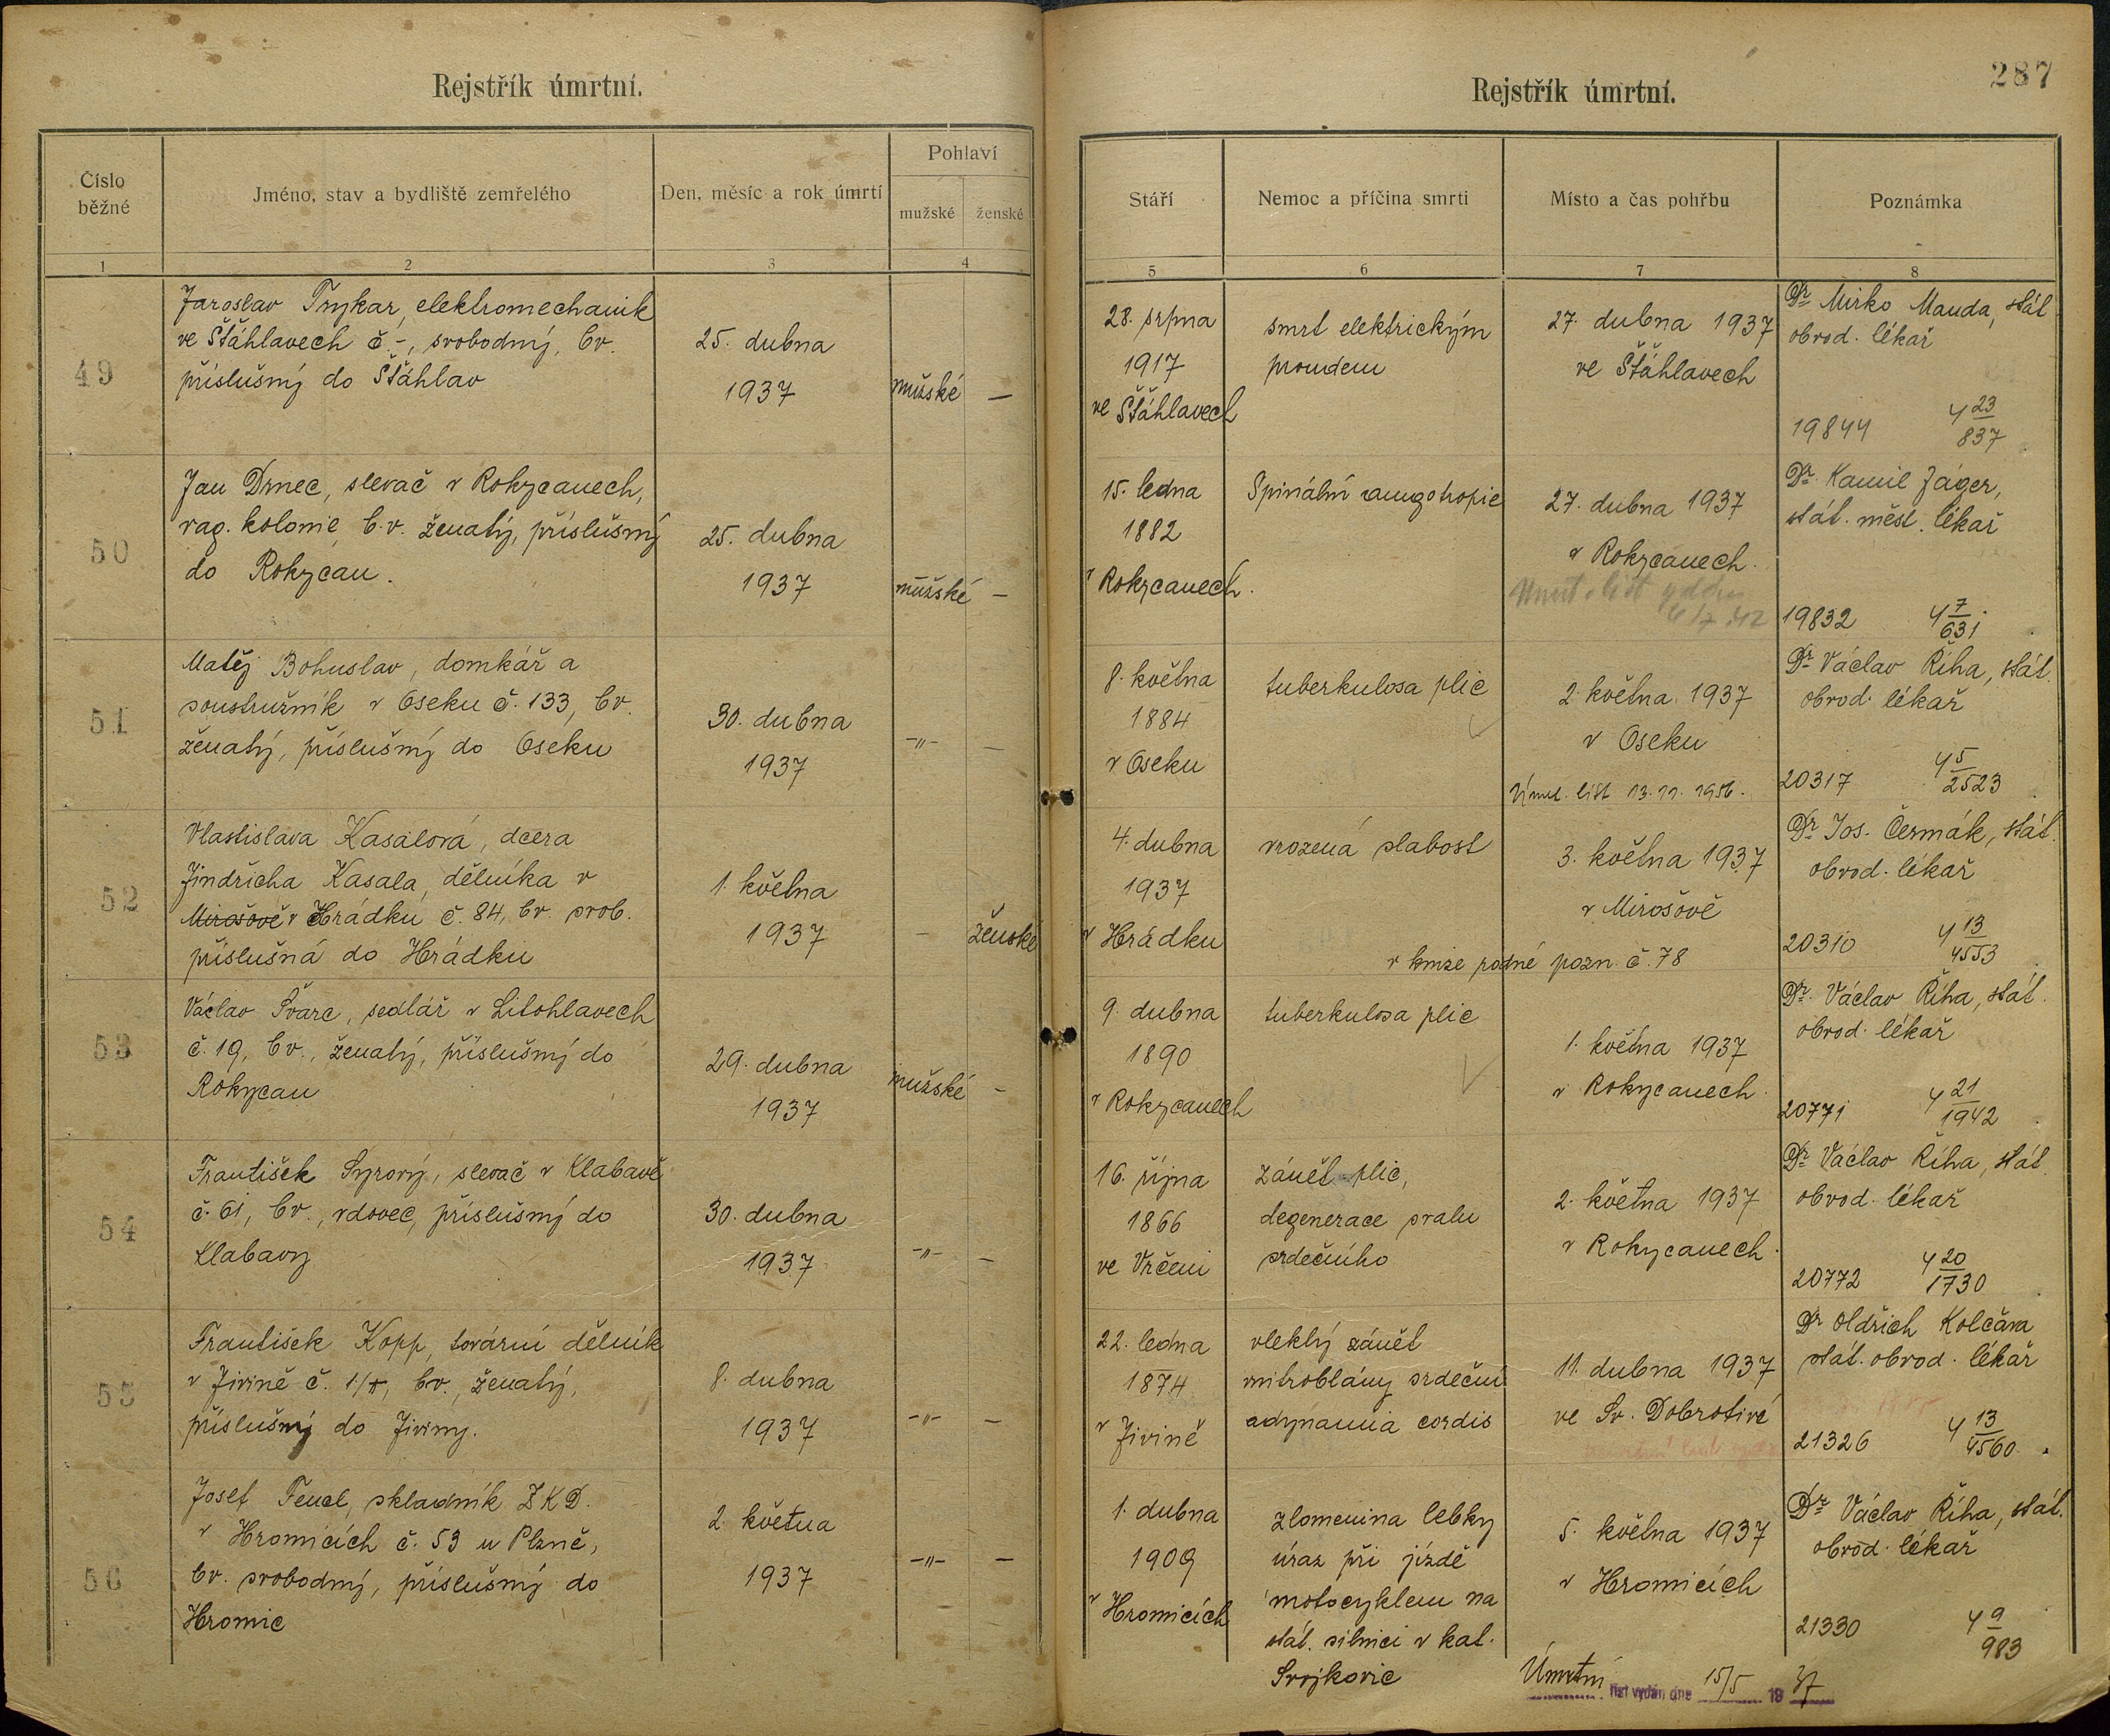 Rejstřík úmrtní.
Číslo běžné
Jméno, stav a bydliště zemřelého
Den, měsíc a rok úmrtí
Pohlaví
mužské
ženské
1
2
3
4
49
Jaroslav Trykar, elektromechanik
ve Šťáhlavech č. -, svobodný, bv.
příslušný do Šťáhlav
25. dubna
1937
mužské
—
50
Jan Drnec, slevač v Rokycanech,
vag. kolonie, b.v. ženatý, příslušný
do Rokycan.
25. dubna
1937
mužské
—
51
Matěj Bohuslav, domkář a
soustružník v Oseku č. 133, bv.
ženatý, příslušný do Oseku
30. dubna
1937
-"-
—
52
Vlastislava Kasalová, dcera
Jindřicha Kasala, dělníka v
Mirošově v Hrádku č. 84, bv. svob.
příslušná do Hrádku
1. května
1937
-
ženské
53
Václav Švarc, sedlář v Litohlavech
č. 19, bv., ženatý, příslušný do
Rokycan
29. dubna
1937
mužské
-
54
František Syrový, slevač v Klabavě
č. 61, bv., vdovec, příslušný do
Klabavy
30. dubna
1937
-"-
—
55
František Kopp, tovární dělník
v Jivině č. 1/I, bv., ženatý,
příslušný do Jiviny.
8. dubna
1937
-"-
—
56
Josef Fencl, skladník ZKD.
v Hromicích č. 53 u Plzně,
bv. svobodný, příslušný do
Hromic
2. května
1937
-"-
—
Rejstřík úmrtní.
287
Stáří
Nemoc a příčina smrti
Místo a čas pohřbu
Poznámka
5
6
7
8
28. srpna
1917
ve Šťáhlavech
smrt elektrickým
proudem
27. dubna 1937
ve Šťáhlavech
Dr. Mirko Mauda, stát
obvod. lékař
19844
4 23/837
15. ledna
1882
v Rokycanech.
Spinální
27. dubna 1937
v Rokycanech.
Úmrt. list vydán
4/7 42
Dr. Kamil Jáger,
stát. měst. lékař
19832
4 7/631
8. května
1884
v Oseku
tuberkulosa plic
2. května 1937
v Oseku
Úmrt. list 13.11.1956.
Dr. Václav Říha, stát.
obvod. lékař
20317
4 5/2523
4. dubna
1937
v Hrádku
vrozená slabost
3. května 1937
v Mirošově
v knize rodné pozn. č. 78
Dr. Jos. Čermák, stát.
obvod. lékař
20310
4 13/4553
9. dubna
1890
v Rokycanech
tuberkulosa plic
1. května 1937
v Rokycanech.
Dr. Václav Říha, stát.
obvod. lékař
20771
4 21/1942
16. října
1866
ve Vrčeni
zánět plic,
degenerace svalu
srdečního
2. května 1937
v Rokycanech.
Dr. Václav Říha, stát.
obvod. lékař
20772
4 20/1730
22. ledna
1874
v Jivině
vleklý zánět
mitroblány srdeční
adynamia cordis
11. dubna 1937
ve Sv. Dobrotivé
Dr. Oldřich Kolčava
stát. obvod. lékař
21326
4 13/4560
1. dubna
1909
v Hromicích
zlomenina lebky
úraz při jízdě
motocyklem na
stát. silnici v kat.
Svojkovic
5. května 1937
v Hromicích
Dr. Václav Říha, stát.
obvod. lékař
21330
4 9/983
Úmrtní list vydán dne 15/5 1937